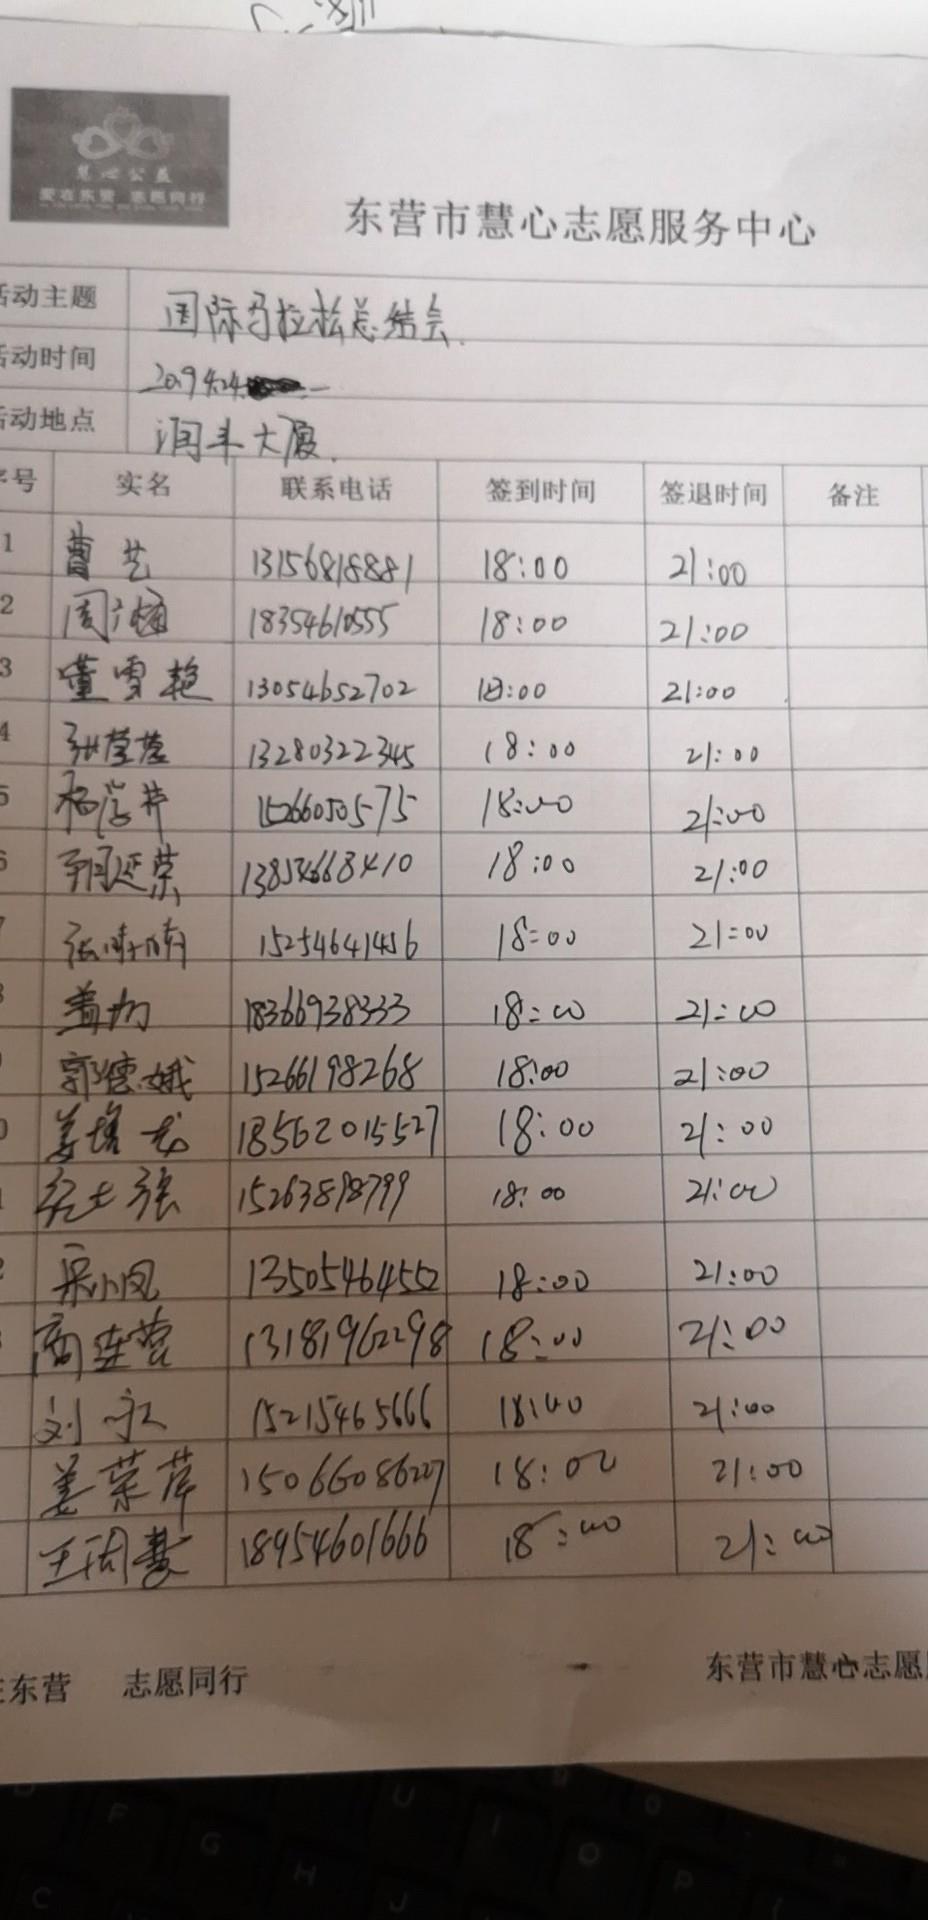 慧心公益
爱在东营 志愿同行
东营市慧心志愿服务中心
活动主题 国际马拉松总结会.
活动时间 2019 4.24
活动地点 润丰大厦.
序号 实名 联系电话 签到时间 签退时间 备注
1 曹艺 13156818881 18:00 21:00
2 周 18354610555 18:00 21:00
3 董雪艳 13054652702 18:00 21:00
4 张莹莹 13280322345 18:00 21:00
5 杨学芹 15266050575 18:00 21:00
6 延荣 18:00 21:00
张晴晴 15254641456 18:00 21:00
盖 18366938333 18:00 21:00
郭德娥 15266198268 18:00 21:00
姜培龙 18562015527 18:00 21:00
15263898799 18:00 21:00
宋小凤 13505464552 18:00 21:00
商连营 13181962298 18:00 21:00
刘永 15215465666 18:00 21:00
姜荣萍 15066086227 18:00 21:00
王周慧 18954601666 18:00 21:00
在东营 志愿同行 东营市慧心志愿
F G H J C U I O P